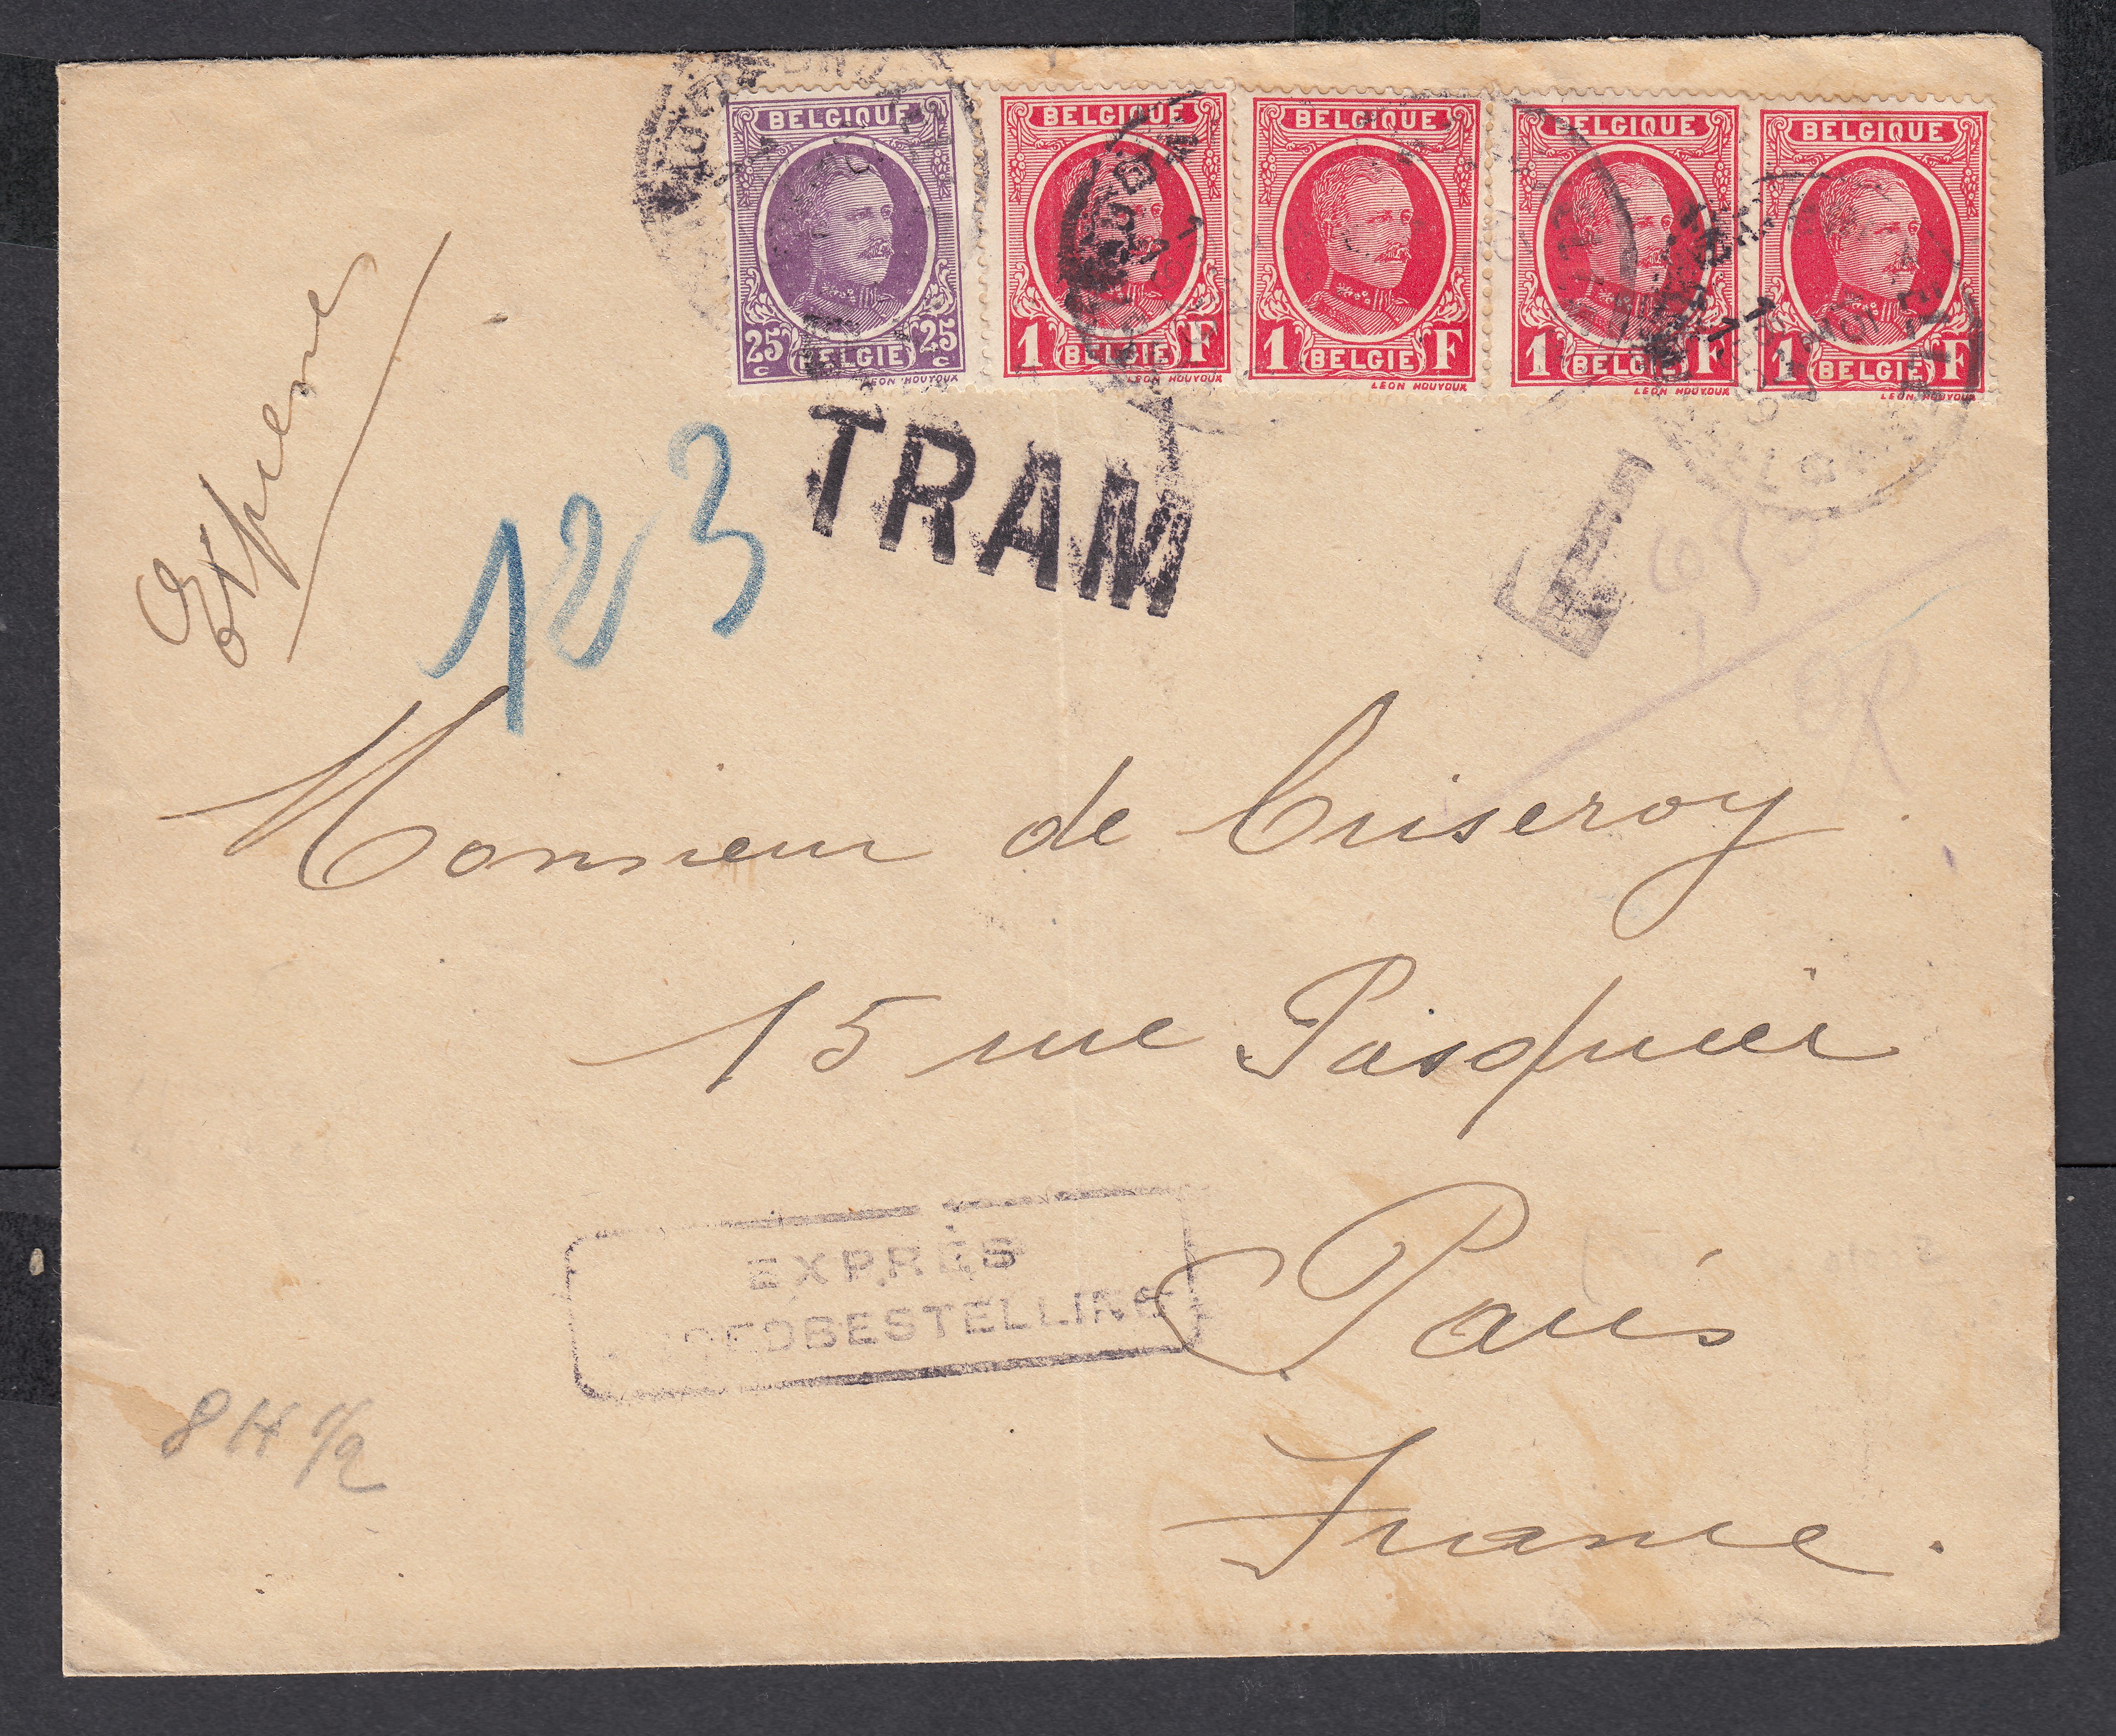 BELGIQUE BELGIQUE BELGIQUE BELGIQUE BELGIQUE
25c BELGIE 25c 1 BELGIE F 1 BELGIE F 1 BELGIE F 1 BELGIE F
LEON HOUYOUX LEON HOUYOUX LEON HOUYOUX LEON HOUYOUX LEON HOUYOUX
TRAM
123
Monsieur de Cuiseroy
15 rue Pasquier
EXPRÈS
Paris
France.
8H 1/2